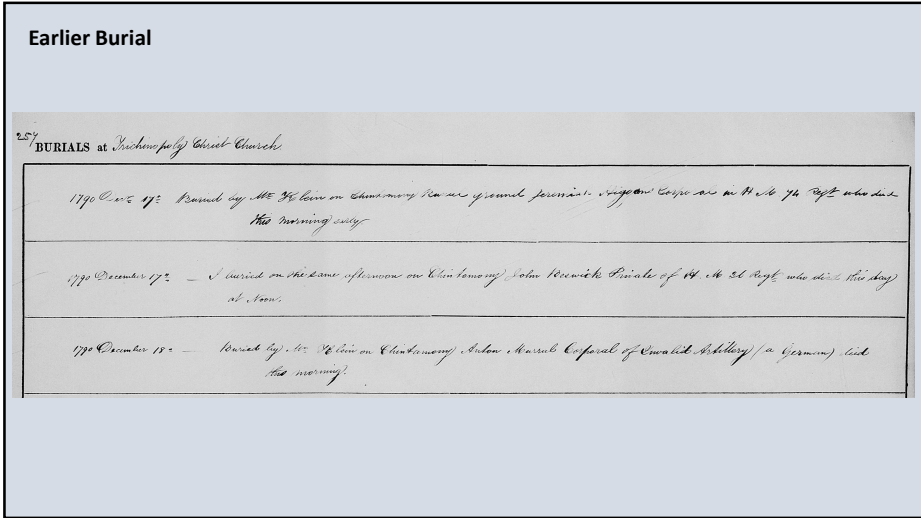 Earlier Burial
257
BURIALS at Trichinopoly Christ Church.
1790 Decr 17th Buried by Mr Klein on Chintamony ground Jeremiah Corporal in H M 74 Regt who died
this morning early
1790 December 17th — I buried on the same afternoon on Chintamony John Beswick Private of H. M Regt who died this day
at Noon.
1790 December 18th — Buried by Mr Klein on Chintamony Anton Marrul Corporal of Invalid Artillery (a German) died
this morning.